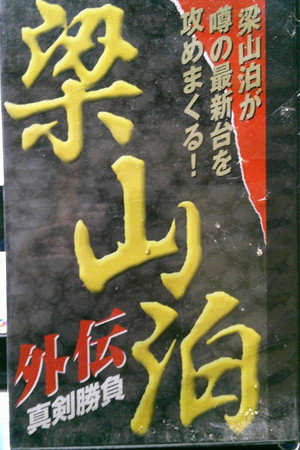 梁山泊が
噂の最新台を
攻めまくる！
梁山泊
外伝
真剣勝負